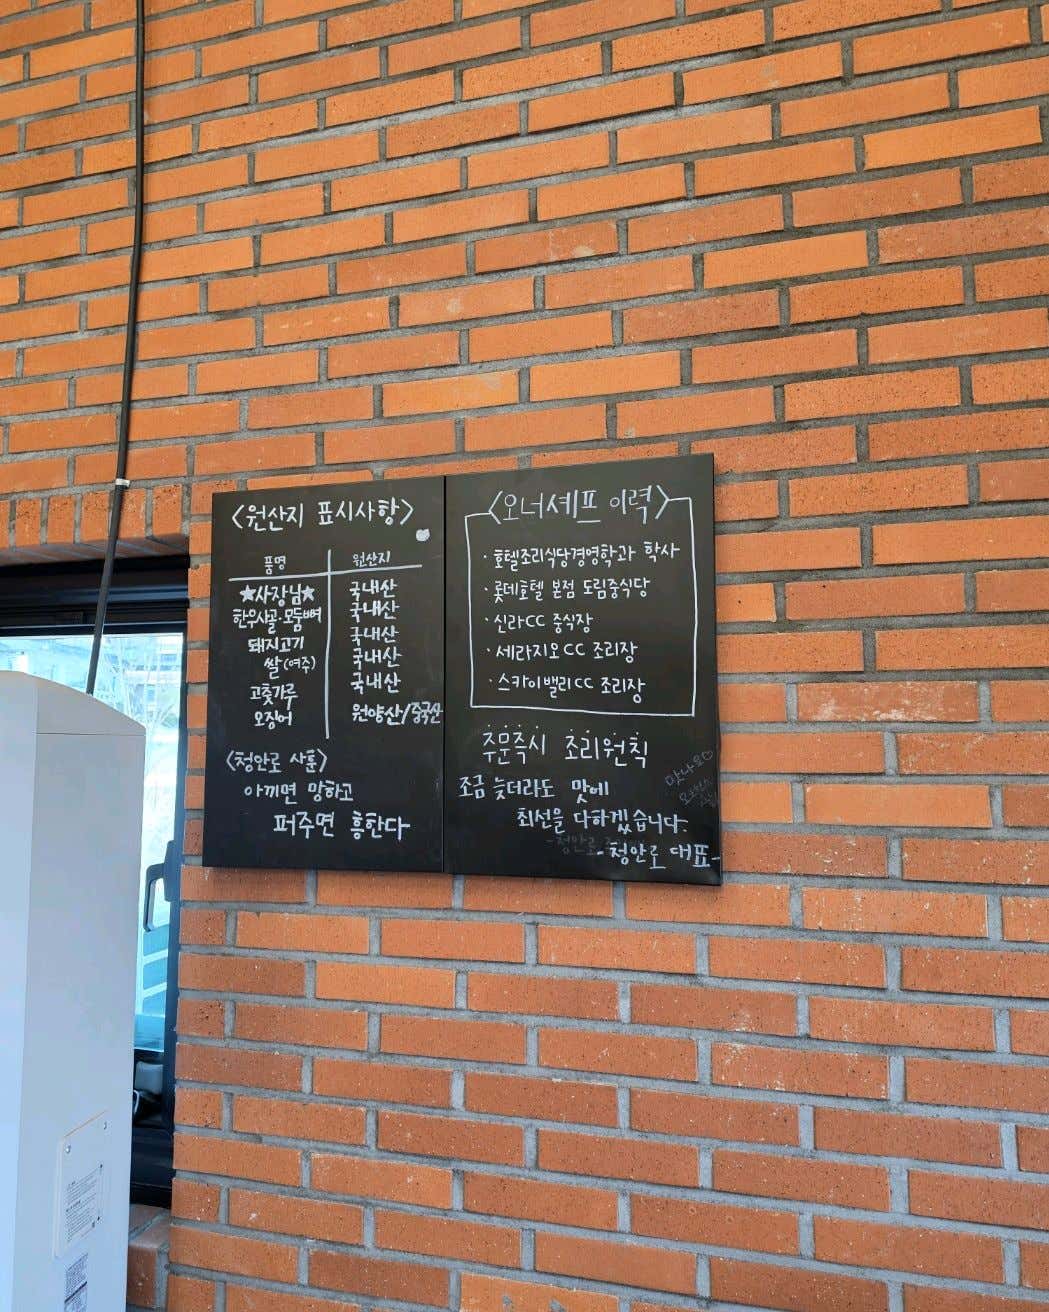 <원산지 표시사항>
품명 원산지
★사장님★ 국내산
한우사골·모둠뼈 국내산
돼지고기 국내산
쌀(여주) 국내산
고춧가루 국내산
오징어 원양산/중국산
<청안로 사훈>
아끼면 망하고
퍼주면 흥한다
<오너셰프 이력>
·호텔조리식당경영학과 학사
·롯데호텔 본점 도림중식당
·신라CC 중식장
·세라지오CC 조리장
·스카이밸리CC 조리장
주문즉시 조리원칙
조금 늦더라도 맛에
최선을 다하겠습니다.
-청안로 대표-